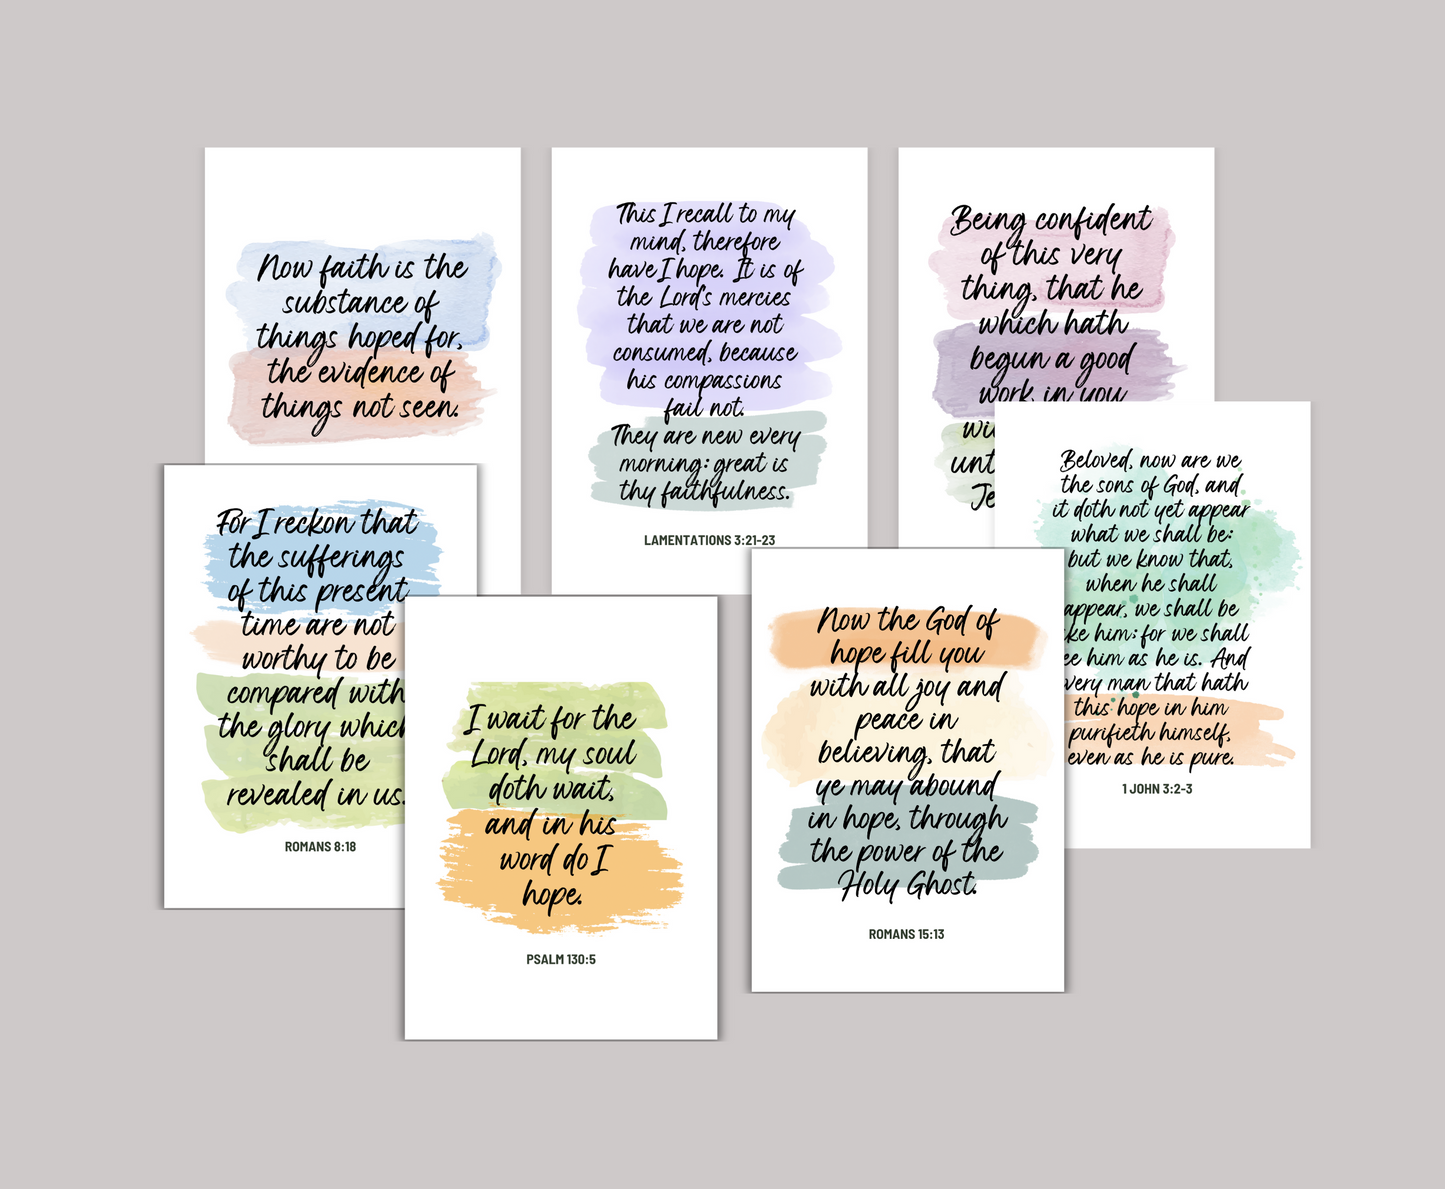 Now faith is the
substance of
things hoped for,
the evidence of
things not seen.
This I recall to my
mind, therefore
have I hope. It is of
the Lord's mercies
that we are not
consumed, because
his compassions
fail not.
They are new every
morning: great is
thy faithfulness.
LAMENTATIONS 3:21-23
Being confident
of this very
thing, that he
which hath
begun a good
work in you
For I reckon that
the sufferings
of this present
time are not
worthy to be
compared with
the glory which
shall be
revealed in us.
ROMANS 8:18
I wait for the
Lord, my soul
doth wait,
and in his
word do I
hope.
PSALM 130:5
Now the God of
hope fill you
with all joy and
peace in
believing, that
ye may abound
in hope, through
the power of the
Holy Ghost.
ROMANS 15:13
Beloved, now are we
the sons of God, and
it doth not yet appear
what we shall be:
but we know that,
when he shall
appear, we shall be
him: for we shall
him as he is. And
man that hath
this hope in him
purifieth himself,
even as he is pure.
1 JOHN 3:2-3